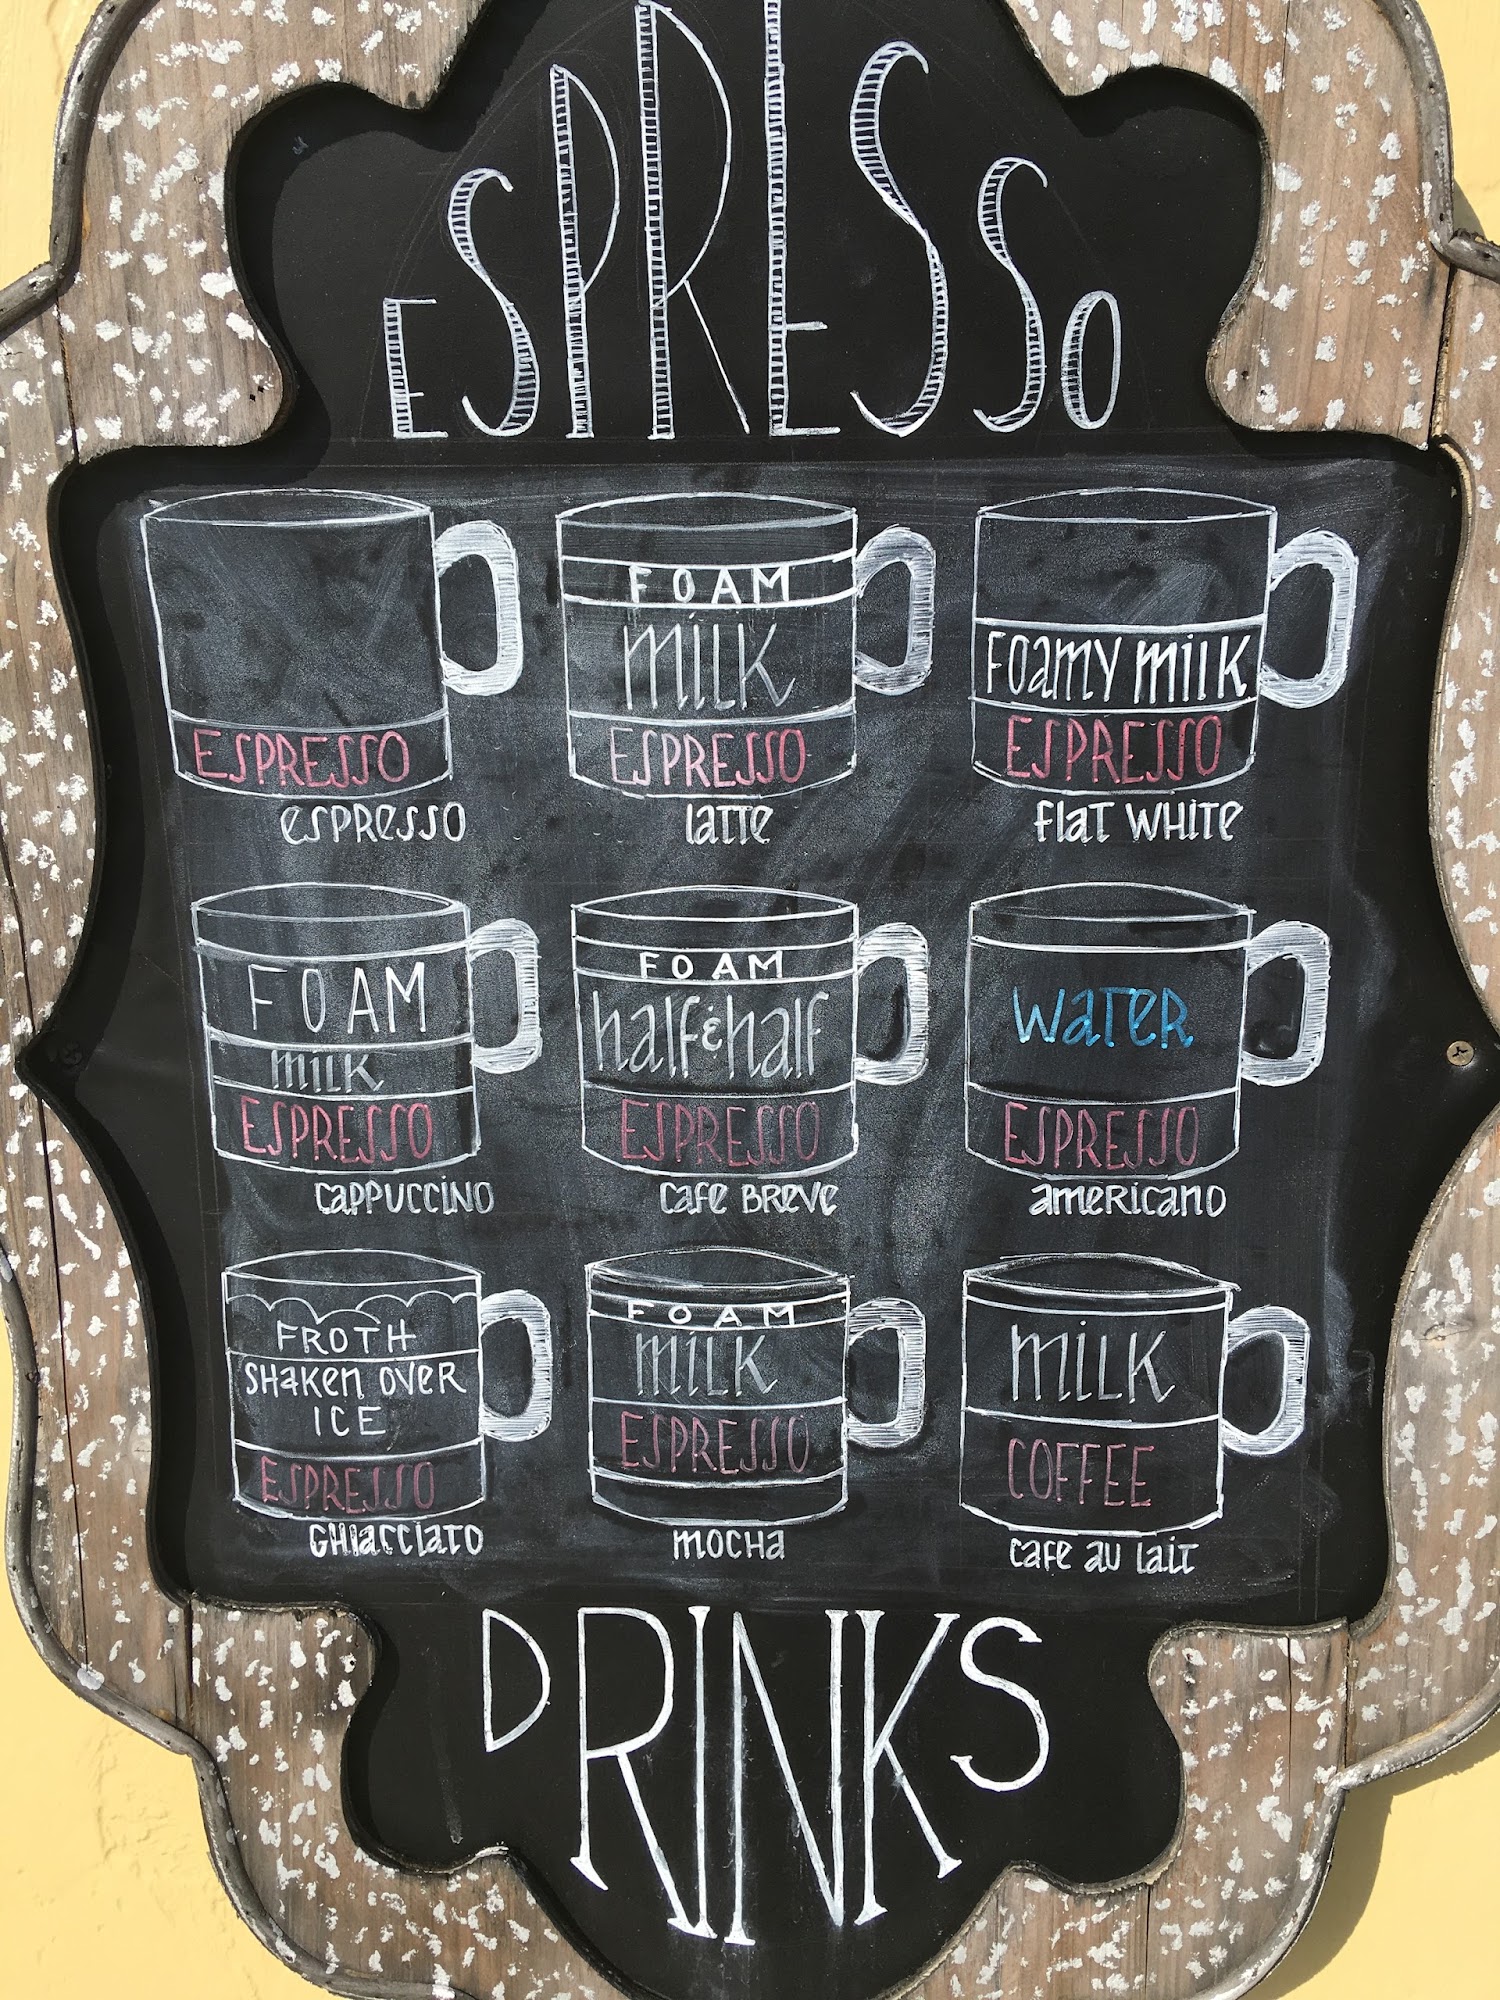 ESPRESSO
ESPRESSO
espresso
FOAM
MILK
ESPRESSO
latte
FOAMY MILK
ESPRESSO
flat white
FOAM
MILK
ESPRESSO
cappuccino
FOAM
half & half
ESPRESSO
cafe breve
WATER
ESPRESSO
americano
FROTH
SHAKEN OVER
ICE
ESPRESSO
GHIACCIATO
FOAM
MILK
ESPRESSO
MOCHA
MILK
COFFEE
cafe au lait
DRINKS